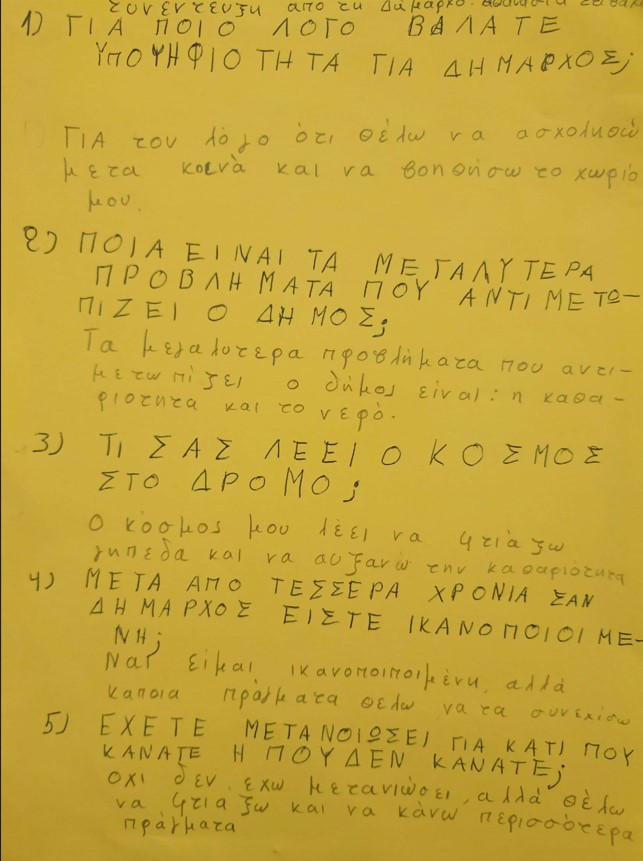 συνεντευξη απο τη Δημαρχο
1) ΓΙΑ ΠΟΙΟ ΛΟΓΟ ΒΑΛΑΤΕ
ΥΠΟΨΗΦΙΟΤΗΤΑ ΓΙΑ ΔΗΜΑΡΧΟΣ;
ΓΙΑ τον λόγο ότι θέλω να ασχοληθώ
μετα κοινὰ και να βοηθήσω το χωριό
μου.
2) ΠΟΙΑ ΕΙΝΑΙ ΤΑ ΜΕΓΑΛΥΤΕΡΑ
ΠΡΟΒΛΗΜΑΤΑ ΠΟΥ ΑΝΤΙΜΕΤΩ-
ΠΙΖΕΙ Ο ΔΗΜΟΣ;
Τα μεγαλυτερα προβλήματα που αντι-
μετωπίζει ο δήμος είναι: η καθα-
ριοτητα και το νερό.
3) ΤΙ ΣΑΣ ΛΕΕΙ Ο ΚΟΣΜΟΣ
ΣΤΟ ΔΡΟΜΟ;
Ο κόσμος μου λέει να φτιάξω
γηπεδα και να αυξανω την καθαριότητα
4) ΜΕΤΑ ΑΠΟ ΤΕΣΣΕΡΑ ΧΡΟΝΙΑ ΣΑΝ
ΔΗΜΑΡΧΟΣ ΕΙΣΤΕ ΙΚΑΝΟΠΟΙΟΙΜΕ-
ΝΗ;
Ναι είμαι ικανοποιποιμένη, αλλά
καποια πράγματα θελω να τα συνεχίσω
5) ΕΧΕΤΕ ΜΕΤΑΝΟΙΩΣΕΙ ΓΙΑ ΚΑΤΙ ΠΟΥ
ΚΑΝΑΤΕ Η ΠΟΥ ΔΕΝ ΚΑΝΑΤΕ;
οχι δεν εχω μετανιώσει, αλλά θέλω
να φτιαξω και να κάνω περισσότερα
πράγματα